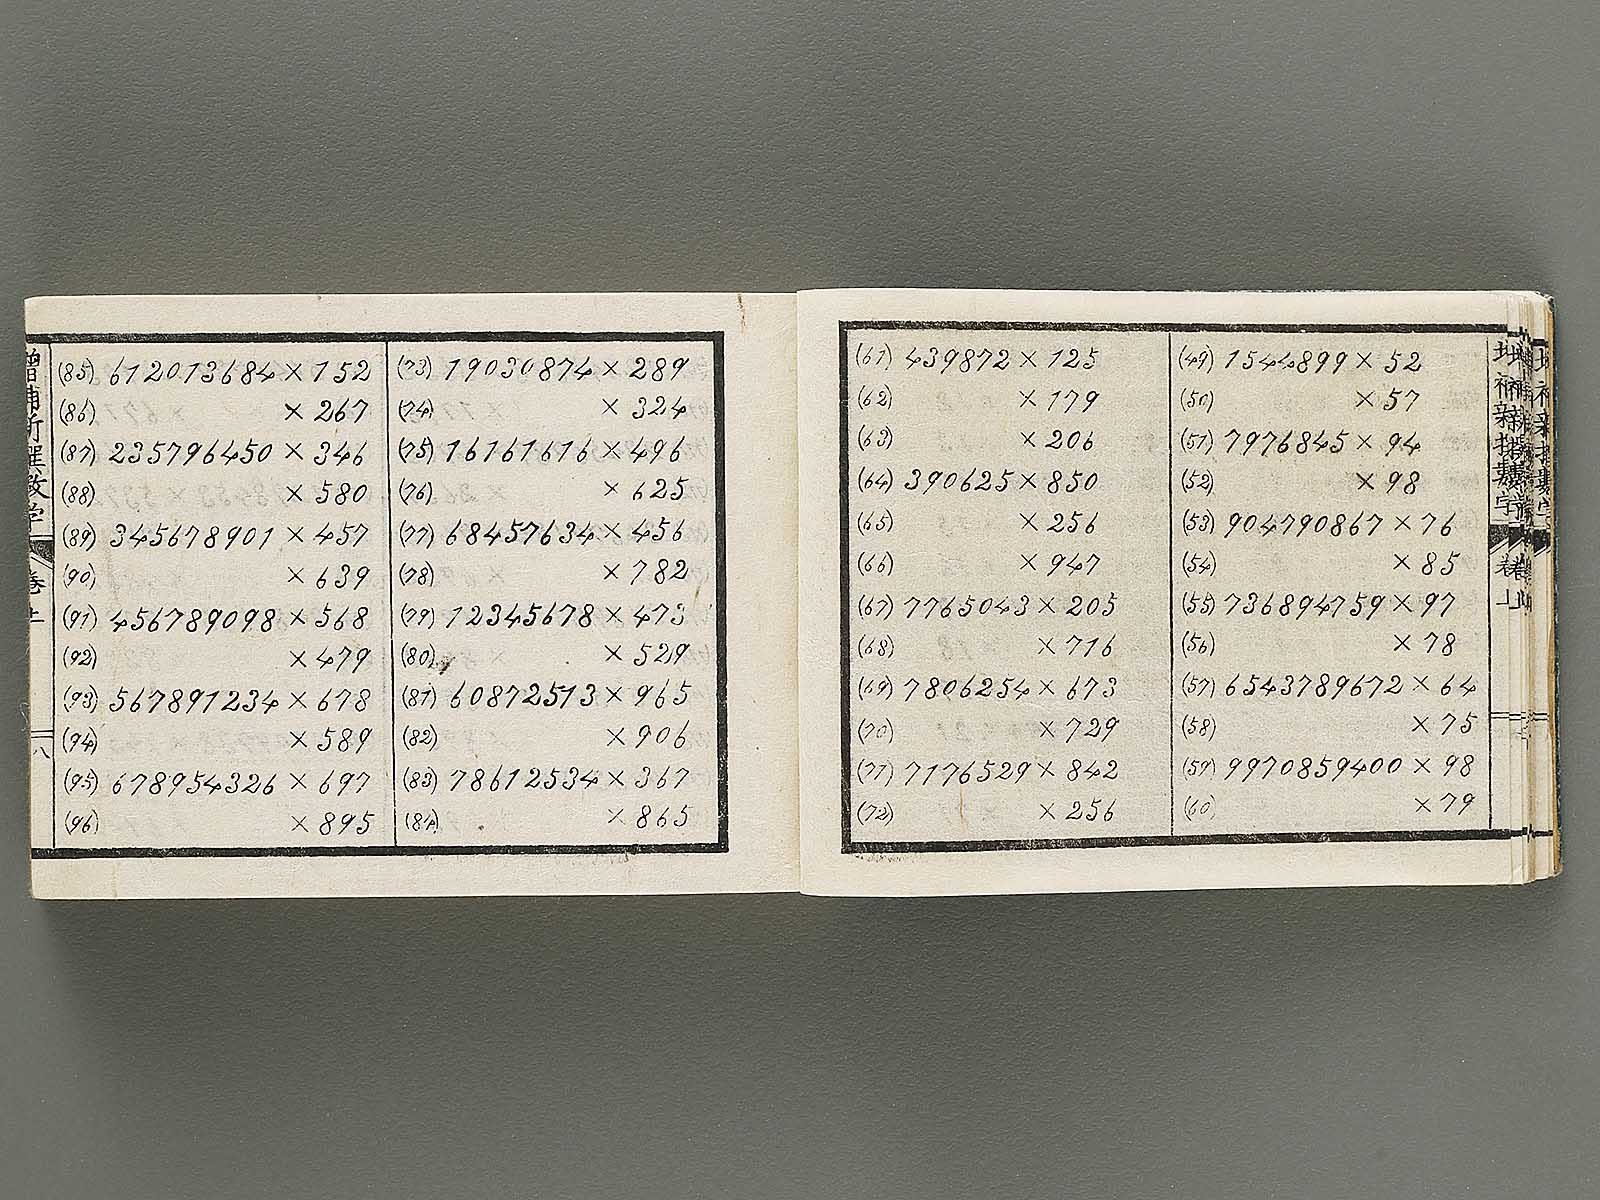 (49) 1544899 × 52
(50) × 57
(51) 7976845 × 94
(52) × 98
(53) 904790867 × 76
(54) × 85
(55) 736894759 × 97
(56) × 78
(57) 6543789672 × 64
(58) × 75
(59) 9970859400 × 98
(60) × 79
(61) 439872 × 125
(62) × 179
(63) × 206
(64) 390625 × 850
(65) × 256
(66) × 947
(67) 7765043 × 205
(68) × 716
(69) 7806254 × 673
(70) × 729
(71) 7176529 × 842
(72) × 256
(73) 19030874 × 289
(74) × 324
(75) 16161616 × 496
(76) × 625
(77) 68457634 × 456
(78) × 782
(79) 12345678 × 473
(80) × 529
(81) 60872513 × 965
(82) × 906
(83) 78612534 × 367
(84) × 865
(85) 612013684 × 152
(86) × 267
(87) 235796450 × 346
(88) × 580
(89) 345678901 × 457
(90) × 639
(91) 456789098 × 568
(92) × 479
(93) 567891234 × 678
(94) × 589
(95) 678954326 × 697
(96) × 895
增補新撰数学
巻上
八